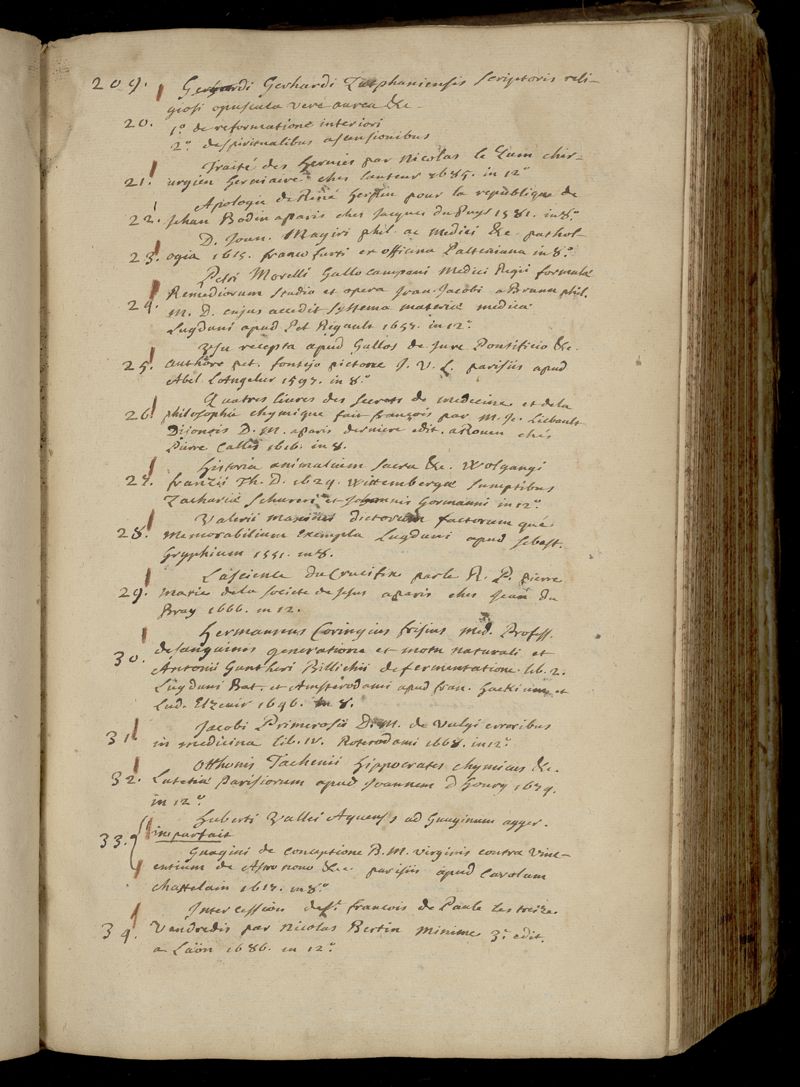 209. Gerhardi Zutphaniensis scriptoris reli-
giosi opuscula vere aurea &c.
20. 1.° de reformatione interiori
2.° de spiritualibus ascensionibus
Traité des Hernies par Nicolas le Quin chir-
21. urgien Herniaire chez l'auteur 1685. in 12.°
Apologie de René Herpin pour la republique de
22. Jehan Bodin a paris chez Jacques du Puys 1581. in 8.°
D. Joan. Magiri phil. ac Medici &c. pathol-
23. ogia 1615. francofurti ex officina Paltheniana in 8.°
Petri Morelli Gallo campani Medici Regii formulae
24. Remediorum studio et opera Joan. Jacobi a Brunn phil.
M. D. cujus accedit systema materiae medicae
Lugduni apud Pet Rigault 1657. in 12.°
Usu recepta apud Gallos de Jure Pontificio &c.
25. authore pet. fontejo pictone J. V. L. parisiis apud
Abel L'angelier 1597. in 8.°
Quatres livres des secrets de medecine et de la
26. philosophie chymique fait françois par M. Je. Liebault
Dijonois D. M. a paris derniere edit. a Rouen chez
Pierre Calles 1616. in 8.
Historia animalium sacra &c. Wolgangi
27. franzii Th. D. 1624. Wittembergae sumptibus
Zachariae Schureri et Johannis Gormanni in 12.°
Valerii maximi dictorum factorum que
28. Memorabilium exempla Lugduni apud Sebast.
Gryphium 1551. in 8.
La science du Crucifix par le R. P. pierre
29. marie de la societe de Jesus a paris chez Jean du
Bray 1666. in 12.
Hermannus Coringius frisius Med. Profess.
30. de sanguinis generatione et motu naturali et
Antonii Guntheri Billichii de fermentatione lib. 2.
Lugduni Bat. et Amsterodami apud fran. Hackium et
Lud. Elzevir 1646. in 8.
Jacobi Primerosii D. M. de Vulgi erroribus
31. in medicina lib. IV. Roterodami 1668. in 12.°
Otthonis Tachenii Hippocrates chymicus &c.
32. Lutetiae Parisiorum apud Joannem d'Houry 1674.
in 12.°
Huberti Vallei Aquensis ad Guaginum agger.
33. imparfait
Guagini de conceptione B. M. virginis contra Vin-
centium de &c. parisiis apud Carolum
Chastelain 1617. in 8.°
Intercession de St. francois de Paule les treize
34. Vendredis par Nicolas Bertin minime 3.e edit.
a Läon 1686. in 12.°